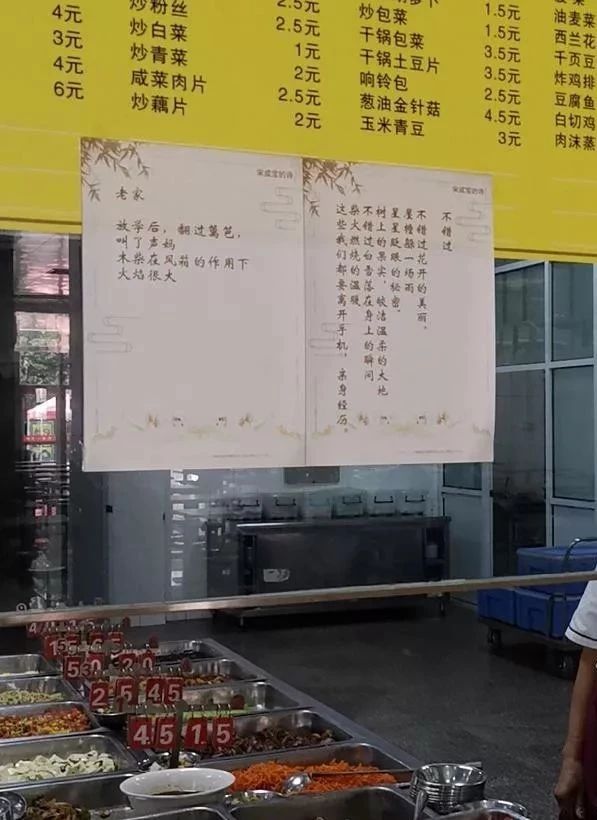 4元
3元
4元
6元
炒粉丝 2.5元
炒白菜 1元
炒青菜 2元
咸菜肉片 2.5元
炒藕片 2元
炒包菜 1.5元
干锅包菜 3.5元
干锅土豆片 3.5元
响铃包 2.5元
葱油金针菇 4.5元
玉米青豆 3元
油麦菜
西兰花
千页豆
炸鸡排
豆腐鱼
白切鸡
肉沫蒸
宋成宝的诗
老家
放学后，翻过篱笆，
叫了声妈
木柴在风箱的作用下
火焰很大
宋成宝的诗
不错过
不错过花开的美丽，
屋檐躲一场雨
星星眨眼的秘密，
树上的果实，皎洁温柔的大地
不错过白雪落在身上的瞬间
柴火燃烧的温暖
这些我们都要离开手机，亲身经历。
2 5 4 5
4 5 1 5